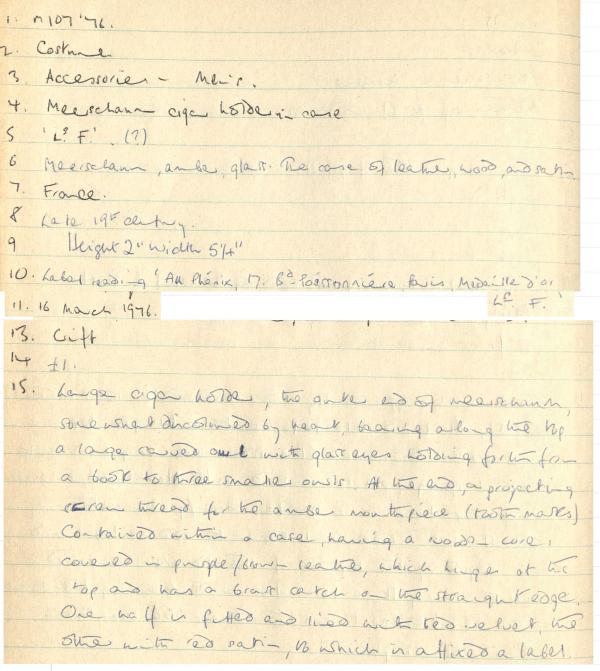 1. M107'76.
2. Costume
3. Accessories - Men's.
4. Meerschaum cigar holder in case
5 'Lᵉ. F.' . (?)
6 Meerschaum, amber, glass. The case of leather, wood, and satin
7. France.
8 Late 19th century.
9 Height 2" Width 5¼"
10. Label reading 'Au Phénix, 17. Bᵈ. Poissonniére, Paris, Medaille d'or
Lᵉ. F.'
11. 16 March 1976.
13. Gift
14 £1.
15. Large cigar holder, the outer end of meerschaum,
somewhat discoloured by heat, bearing along the top
a large carved owl with glass eyes holding forth from
a book to three smaller owls. At the end, a projecting
screw thread for the amber mouthpiece (tooth marks)
Contained within a case, having a wooden core,
covered in purple/brown leather, which hinges at the
top and has a brass catch on the straight edge.
One half is fitted and lined with red velvet, the
other with red satin, to which is affixed a label.